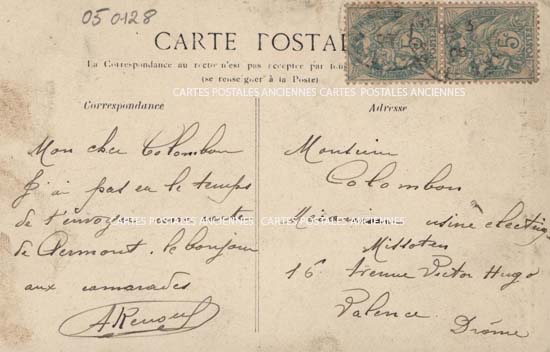 050128
CARTE POSTALE
La Correspondance au recto n'est pas acceptée par tous
(se renseigner à la Poste)
CARTES POSTALES ANCIENNES CARTES POSTALES ANCIENNES
Correspondance
Mon cher Colombon
J'ai pas eu le temps
de t'envoyer une carte
de Clermont. le bonjour
aux camarades
A Renoul
Adresse
Monsieur
Colombon
Mécanicien usine électriq
16 Avenue Victor Hugo
Valence
Drôme
CARTES POSTALES ANCIENNES CARTES POSTALES ANCIENNES
5
5